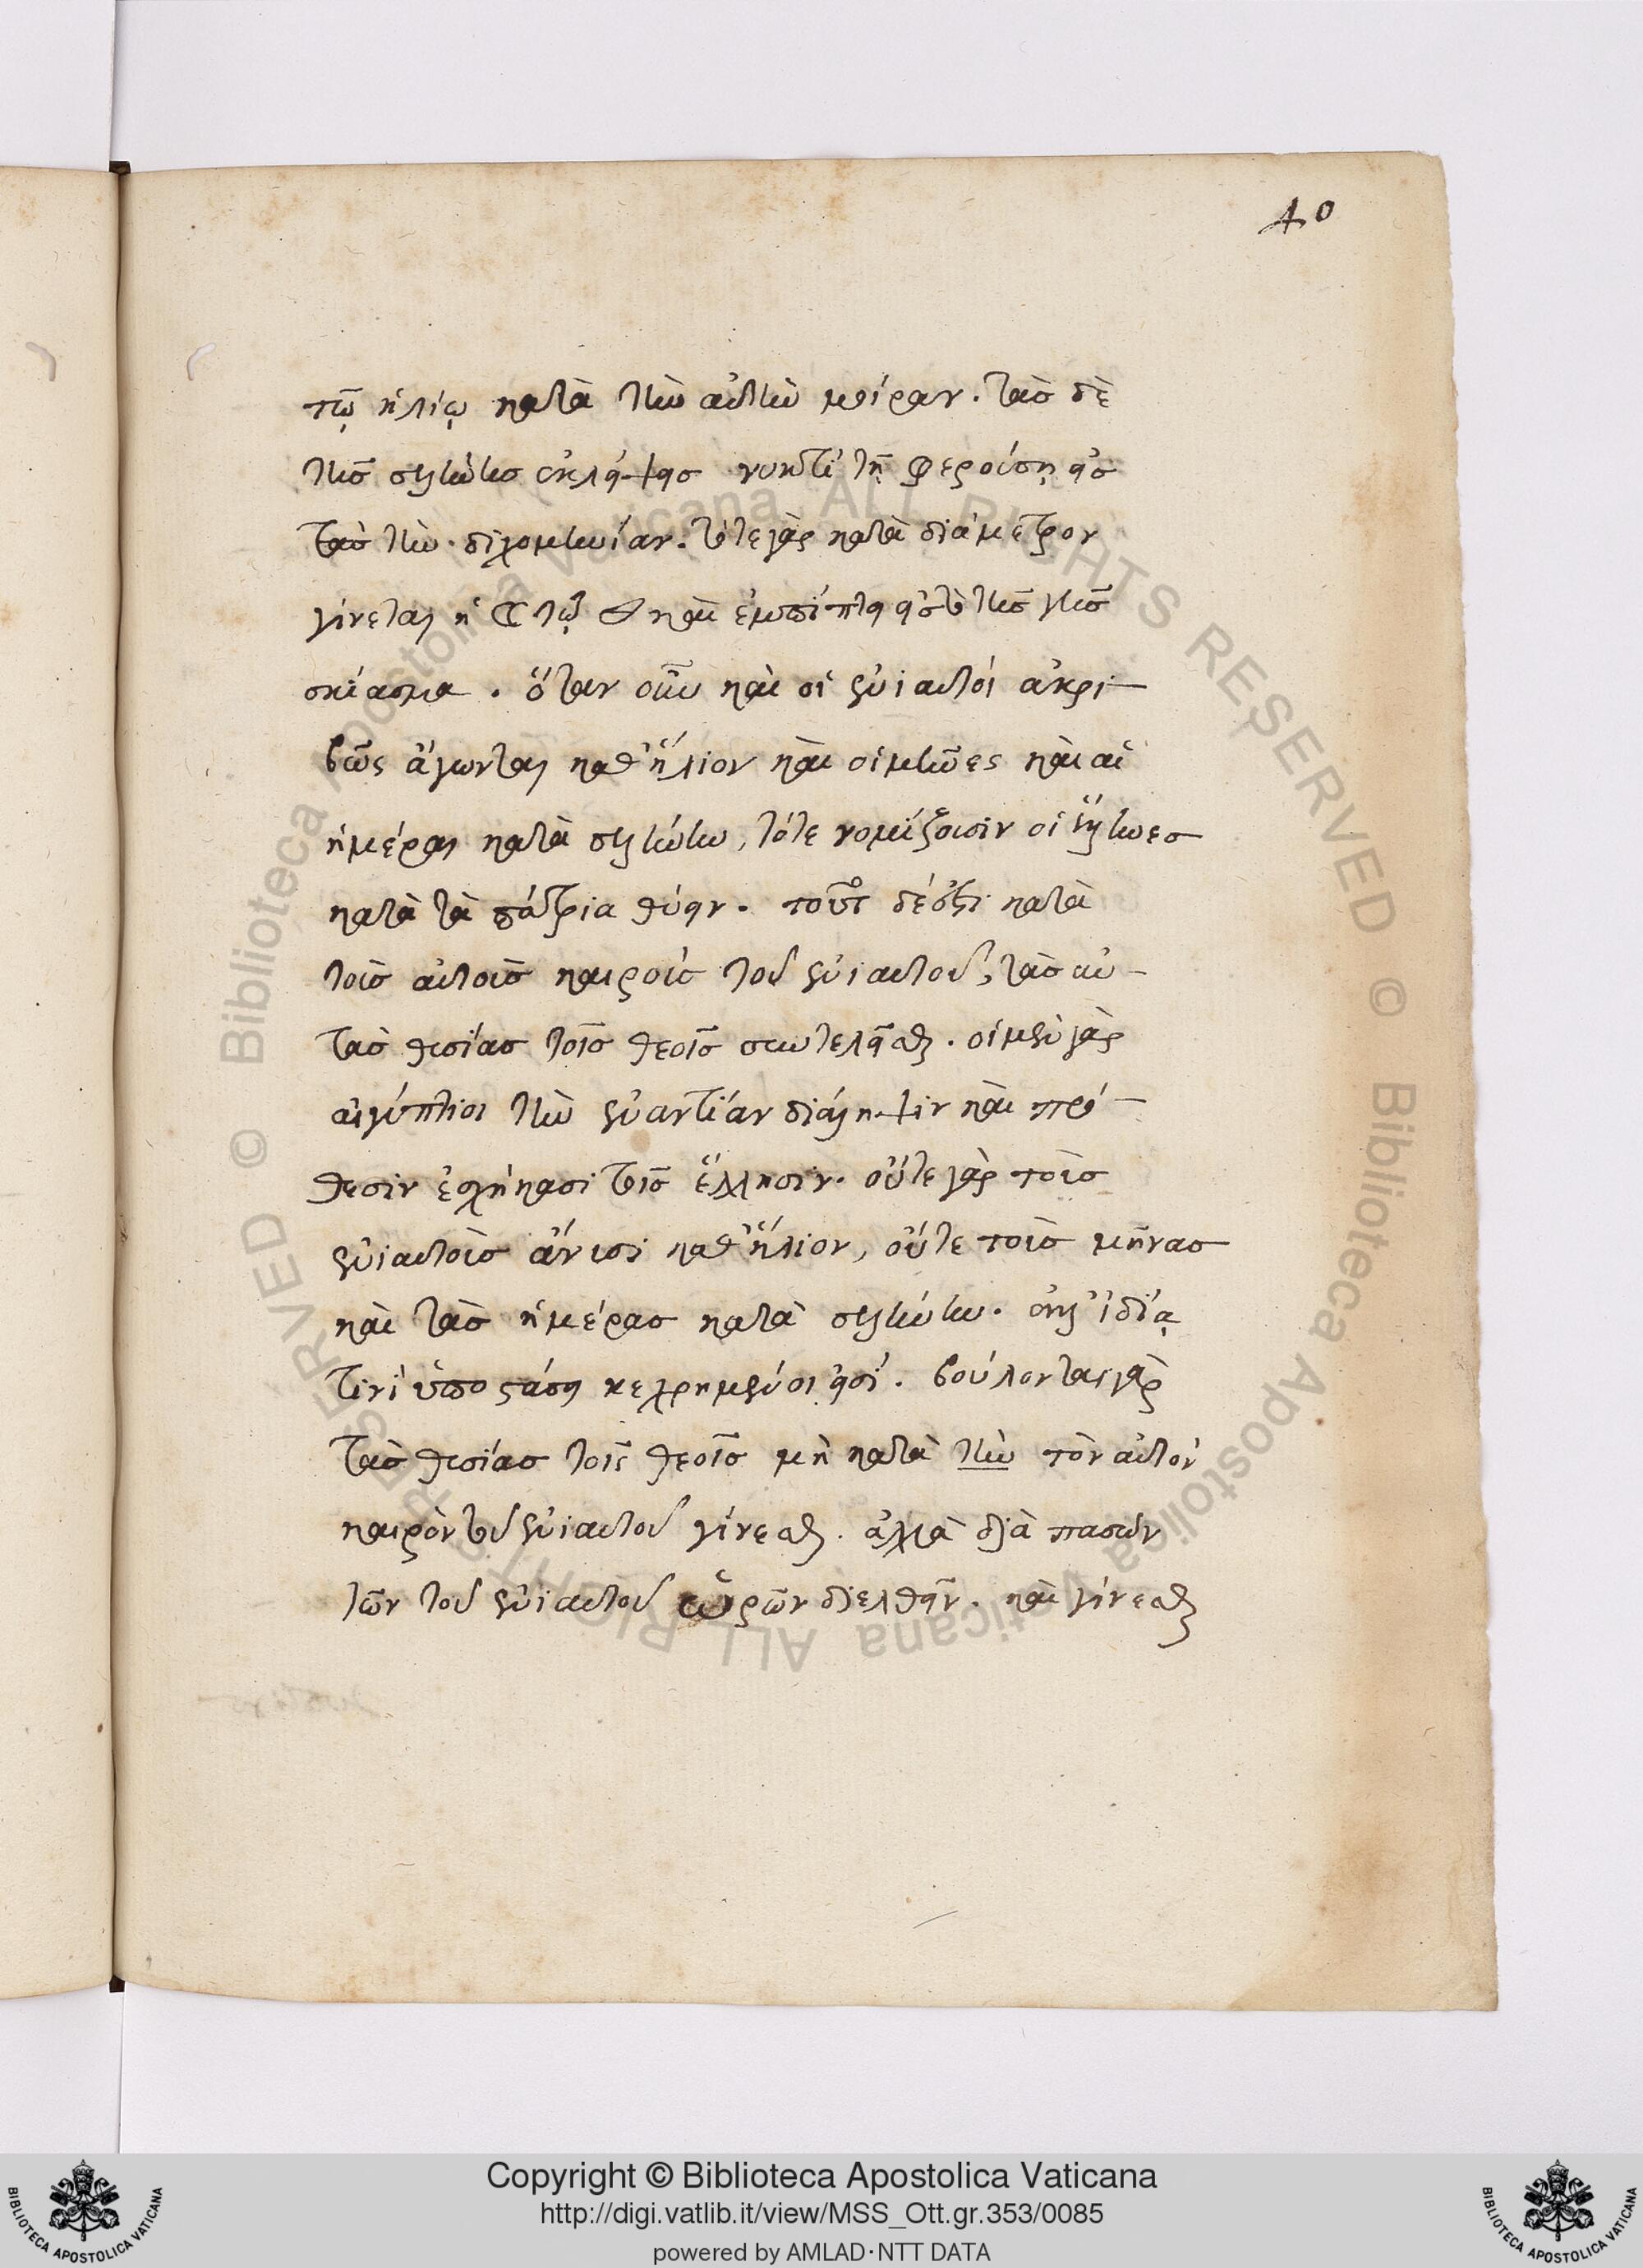 40
τῷ ἡλίῳ κατὰ τὴν αὐτὴν μοίραν. τὰσ δὲ
τῆσ σελήνησ ἐκλείψεισ νυκτὶ τῇ φερούσῃ εἰσ
τασ τὴν διχομηνίαν. τότε γὰρ κατὰ διάμετρον
γίνεται ἡ ☾ τῷ ☉ καὶ ἐμπίπτει εἰσ τὸ τῆσ γῆσ
σκίασμα. ὅταν οὖν καὶ οἱ ἐνιαυτοί ἀκρι-
βῶς ἄγωνται καθ' ἥλιον καὶ οἱ μῆνες καὶ αἱ
ἡμέραι κατὰ σελήνην, τότε νομίζουσιν οἱ ἕλληνεσ
κατὰ τὰ πάτρια θύειν. τοῦτο δέ ἐστι κατὰ
τοὺσ αὐτοὺσ καιροὺσ τοῦ ἐνιαυτοῦ, τὰσ αὐ-
τὰσ θυσίασ τοῖσ θεοῖσ συντελεῖσθαι. οἱ μὲν γὰρ
αἰγύπτιοι τὴν ἐναντίαν διάληψιν καὶ πρό-
θεσιν ἐσχήκασι τοῖσ ἕλλησιν. οὔτε γὰρ τοὺσ
ἐνιαυτοὺσ ἄγουσι καθ' ἥλιον, οὔτε τοὺσ μῆνασ
καὶ τὰσ ἡμέρασ κατὰ σελήνην. ἀλλ' ἰδίᾳ
τινὶ ὑποστάσει κεχρημένοι εἰσί. βούλονται γὰρ
τὰσ θυσίασ τοῖς θεοῖσ μὴ κατὰ τὴν τὸν αὐτὸν
καιρὸν τοῦ ἐνιαυτοῦ γίνεσθαι. ἀλλὰ διὰ πασῶν
τῶν τοῦ ἐνιαυτοῦ ὡρῶν διελθεῖν. καὶ γίνεσθαι
Copyright © Biblioteca Apostolica Vaticana
http://digi.vatlib.it/view/MSS_Ott.gr.353/0085
powered by AMLAD·NTT DATA
BIBLIOTECA APOSTOLICA VATICANA
BIBLIOTECA APOSTOLICA VATICANA
© Biblioteca Apostolica Vaticana ALL RIGHTS RESERVED
© Biblioteca Apostolica Vaticana ALL RIGHTS RESERVED